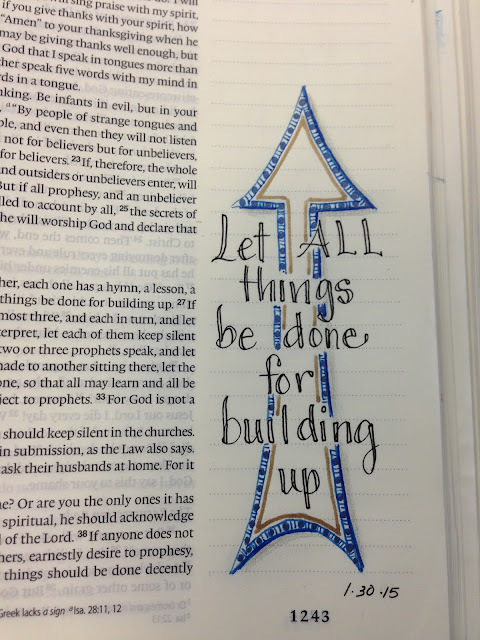 sing praise with my spirit,
if you give thanks with your spirit, how
"Amen" to your thanksgiving when he
may be giving thanks well enough, but
God that I speak in tongues more than
ther speak five words with my mind in
rds in a tongue.
nking. Be infants in evil, but in your
"By people of strange tongues and
ple, and even then they will not listen
not for believers but for unbelievers,
for believers. 23 If, therefore, the whole
nd outsiders or unbelievers enter, will
But if all prophesy, and an unbeliever
lled to account by all, 25 the secrets of
he will worship God and declare that
her, each one has a hymn, a lesson, a
things be done for building up. 27 If
most three, and each in turn, and let
terpret, let each of them keep silent
two or three prophets speak, and let
made to another sitting there, let the
one, so that all may learn and all be
ject to prophets. 33 For God is not a
should keep silent in the churches.
in submission, as the Law also says.
ask their husbands at home. For it
me? Or are you the only ones it has
spiritual, he should acknowledge
l of the Lord. 38 If anyone does not
hers, earnestly desire to prophesy,
things should be done decently
Greek lacks a sign d Isa. 28:11, 12
Let ALL
things
be done
for
building
up
1·30·15
1243